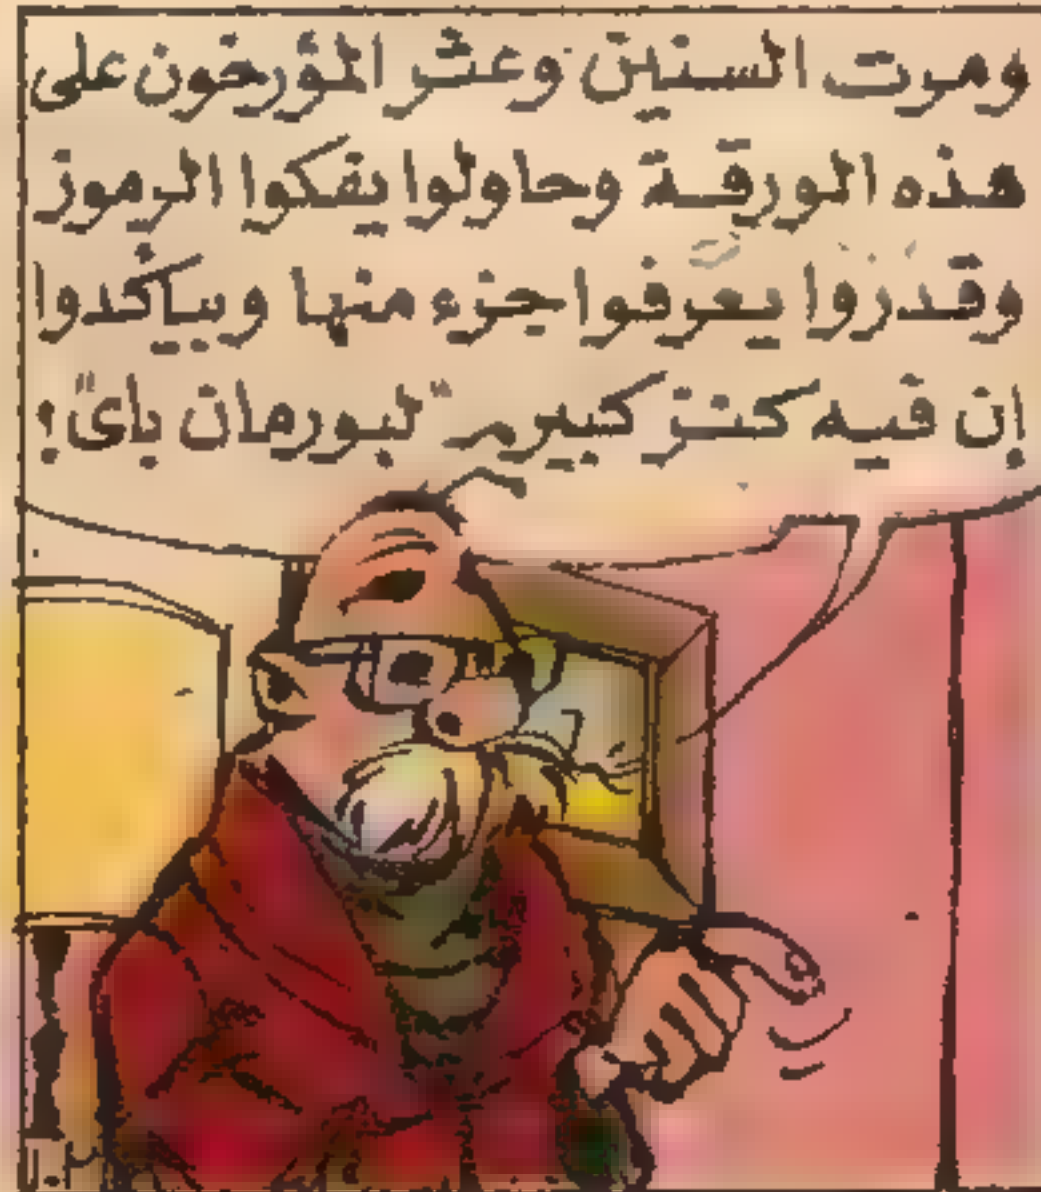 ومرت السنين وعثر المؤرخون على
هذه الورقة وحاولوا يفكوا الرموز
وقدروا يعرفوا جزء منها وبيأكدوا
إن فيه كنز كبير "لبورمان باى"!